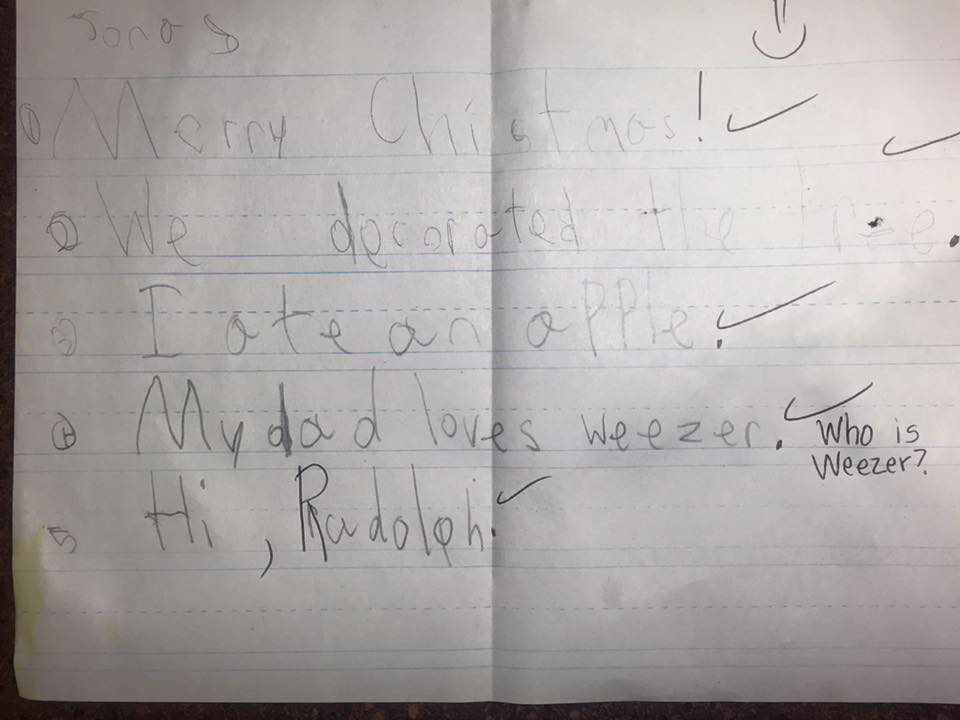 Jonas
① Merry Chistmas!
② We decorated the tree.
③ I ate an apple.
④ My dad loves weezer. Who is Weezer?
5 Hi, Rudolph.